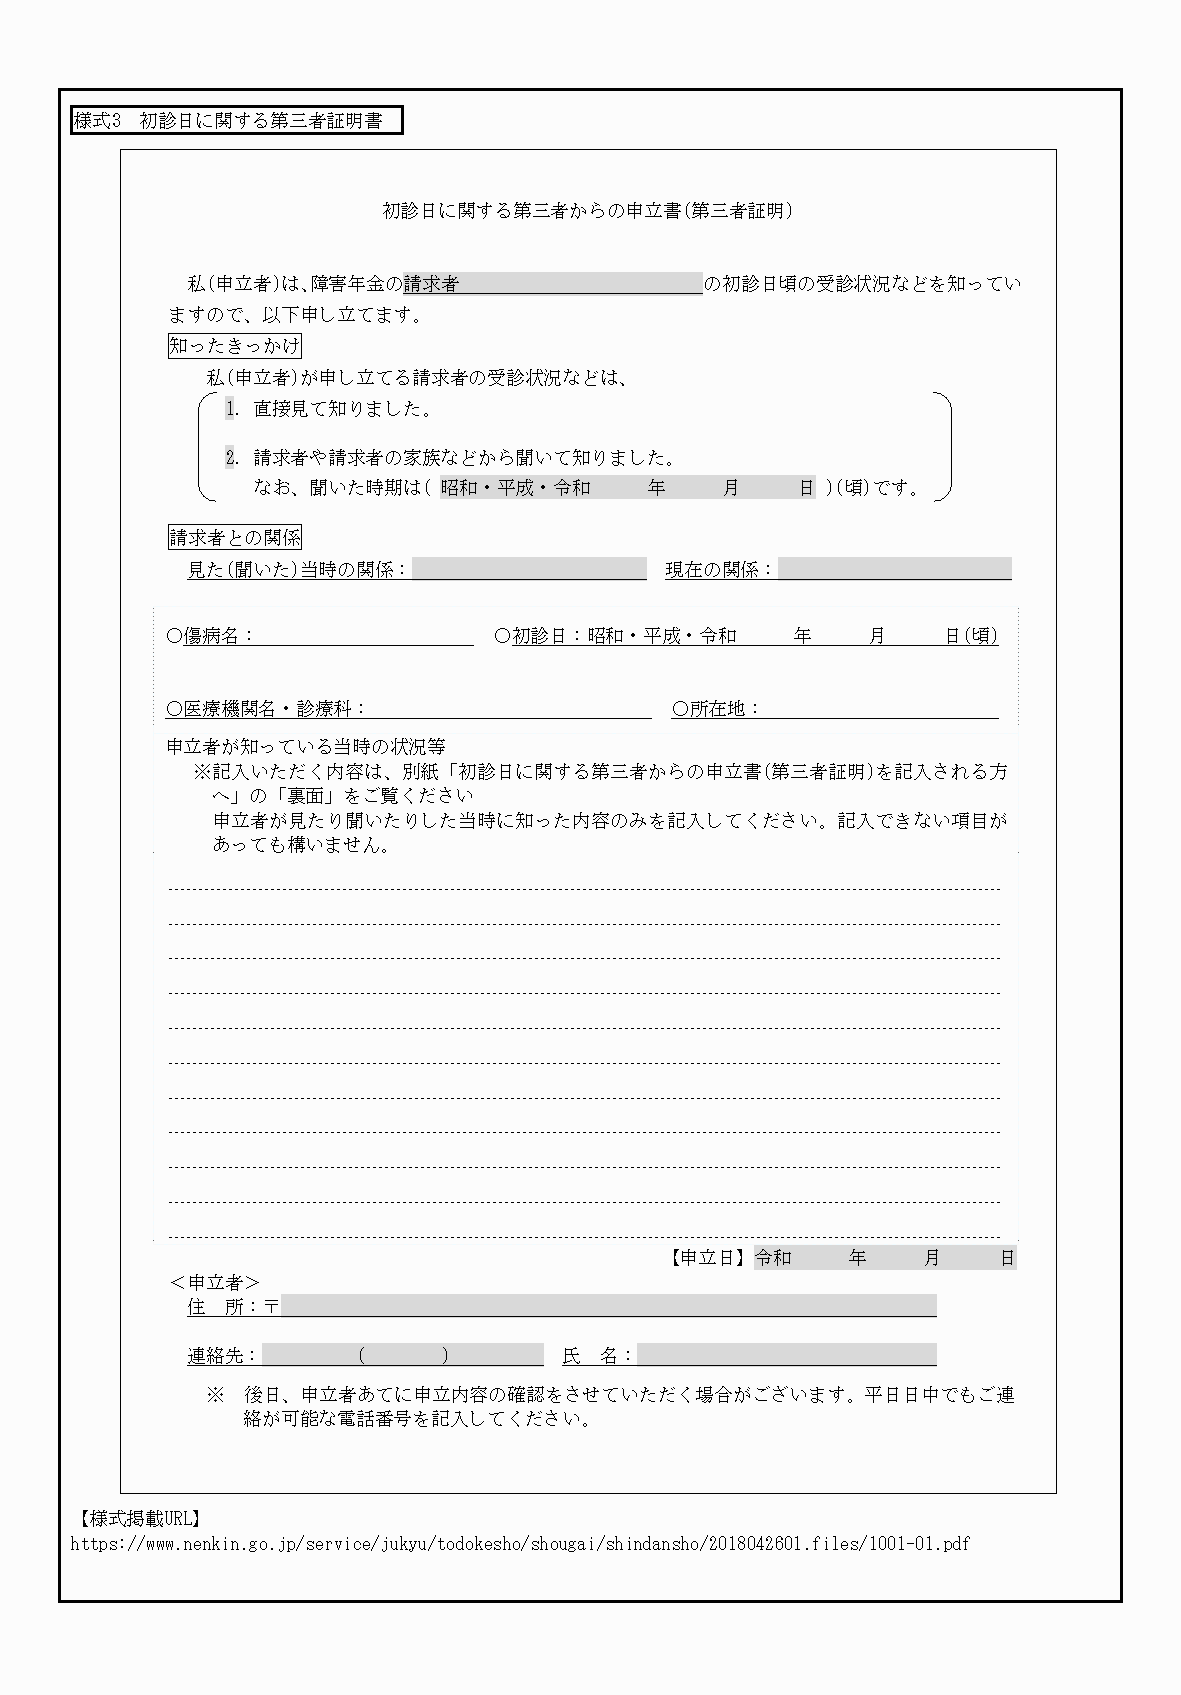 様式3　初診日に関する第三者証明書
初診日に関する第三者からの申立書(第三者証明)
私(申立者)は、障害年金の請求者　　　　　　　　　　　　　の初診日頃の受診状況などを知ってい
ますので、以下申し立てます。
知ったきっかけ
私(申立者)が申し立てる請求者の受診状況などは、
1. 直接見て知りました。
2. 請求者や請求者の家族などから聞いて知りました。
なお、聞いた時期は( 昭和・平成・令和　　　年　　　月　　　日 )(頃)です。
請求者との関係
見た(聞いた)当時の関係：　　　　　　　　　　　　　現在の関係：
○傷病名：　　　　　　　　　　　　○初診日：昭和・平成・令和　　　年　　　月　　　日(頃)
○医療機関名・診療科：　　　　　　　　　　　　　　　○所在地：
申立者が知っている当時の状況等
※記入いただく内容は、別紙「初診日に関する第三者からの申立書(第三者証明)を記入される方
へ」の「裏面」をご覧ください
申立者が見たり聞いたりした当時に知った内容のみを記入してください。記入できない項目が
あっても構いません。
【申立日】令和　　　年　　　月　　　日
＜申立者＞
住　所：〒
連絡先：　　　　　(　　　　)　　　　　　氏　名：
※　後日、申立者あてに申立内容の確認をさせていただく場合がございます。平日日中でもご連
絡が可能な電話番号を記入してください。
【様式掲載URL】
https://www.nenkin.go.jp/service/jukyu/todokesho/shougai/shindansho/2018042601.files/1001-01.pdf